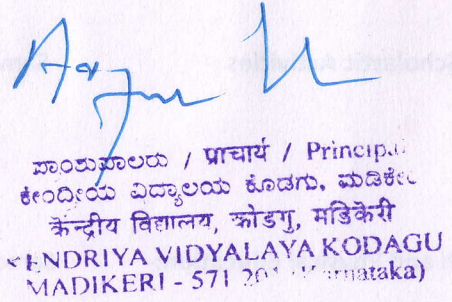 ಪ್ರಾಂಶುಪಾಲರು / प्राचार्य / Princip
ಕೇಂದ್ರೀಯ ವಿದ್ಯಾಲಯ ಕೊಡಗು, ಮಡಿಕೇ
केन्द्रीय विद्यालय, कोडगु, मडिकेरी
KENDRIYA VIDYALAYA KODAGU
MADIKERI - 571 201 (Karnataka)